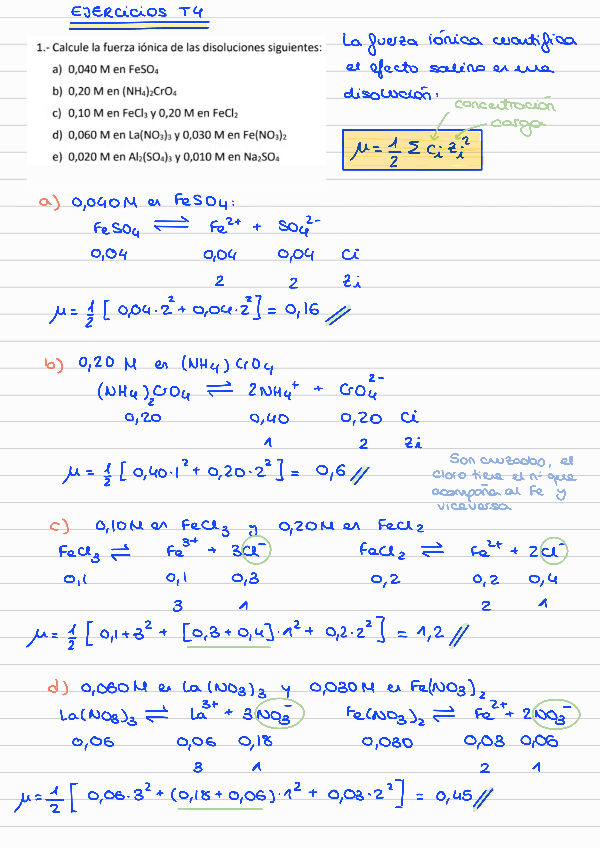 EJERCICIOS T4
1.- Calcule la fuerza iónica de las disoluciones siguientes:
a) 0,040 M en FeSO₄
b) 0,20 M en (NH₄)₂CrO₄
c) 0,10 M en FeCl₃ y 0,20 M en FeCl₂
d) 0,060 M en La(NO₃)₃ y 0,030 M en Fe(NO₃)₂
e) 0,020 M en Al₂(SO₄)₃ y 0,010 M en Na₂SO₄
La fuerza iónica cuantifica
el efecto salino en una
disolución:
concentración
carga
μ = 1/2 Σ Ci Zi²
a) 0,040 M en FeSO₄:
FeSO₄ ⇌ Fe²⁺ + SO₄²⁻
0,04 0,04 0,04 Ci
2 2 Zi
μ = 1/2 [ 0,04·2² + 0,04·2² ] = 0,16 //
b) 0,20 M en (NH₄) CrO₄
(NH₄)₂CrO₄ ⇌ 2NH₄⁺ + CrO₄²⁻
0,20 0,40 0,20 Ci
1 2 Zi
μ = 1/2 [ 0,40·1² + 0,20·2² ] = 0,6 //
Son cruzados, el
cloro tiene el nº que
acompaña al Fe y
viceversa
c) 0,10M en FeCl₃ y 0,20M en FeCl₂
FeCl₃ ⇌ Fe³⁺ + 3Cl⁻ FeCl₂ ⇌ Fe²⁺ + 2Cl⁻
0,1 0,1 0,3 0,2 0,2 0,4
3 1 2 1
μ = 1/2 [ 0,1+3² + [0,3 + 0,4]·1² + 0,2·2² ] = 1,2 //
d) 0,060M en La(NO₃)₃ y 0,030M en Fe(NO₃)₂
La(NO₃)₃ ⇌ La³⁺ + 3NO₃⁻ Fe(NO₃)₂ ⇌ Fe²⁺ + 2NO₃⁻
0,06 0,06 0,18 0,030 0,03 0,06
3 1 2 1
μ = 1/2 [ 0,06·3² + (0,18 + 0,06)·1² + 0,03·2² ] = 0,45 //